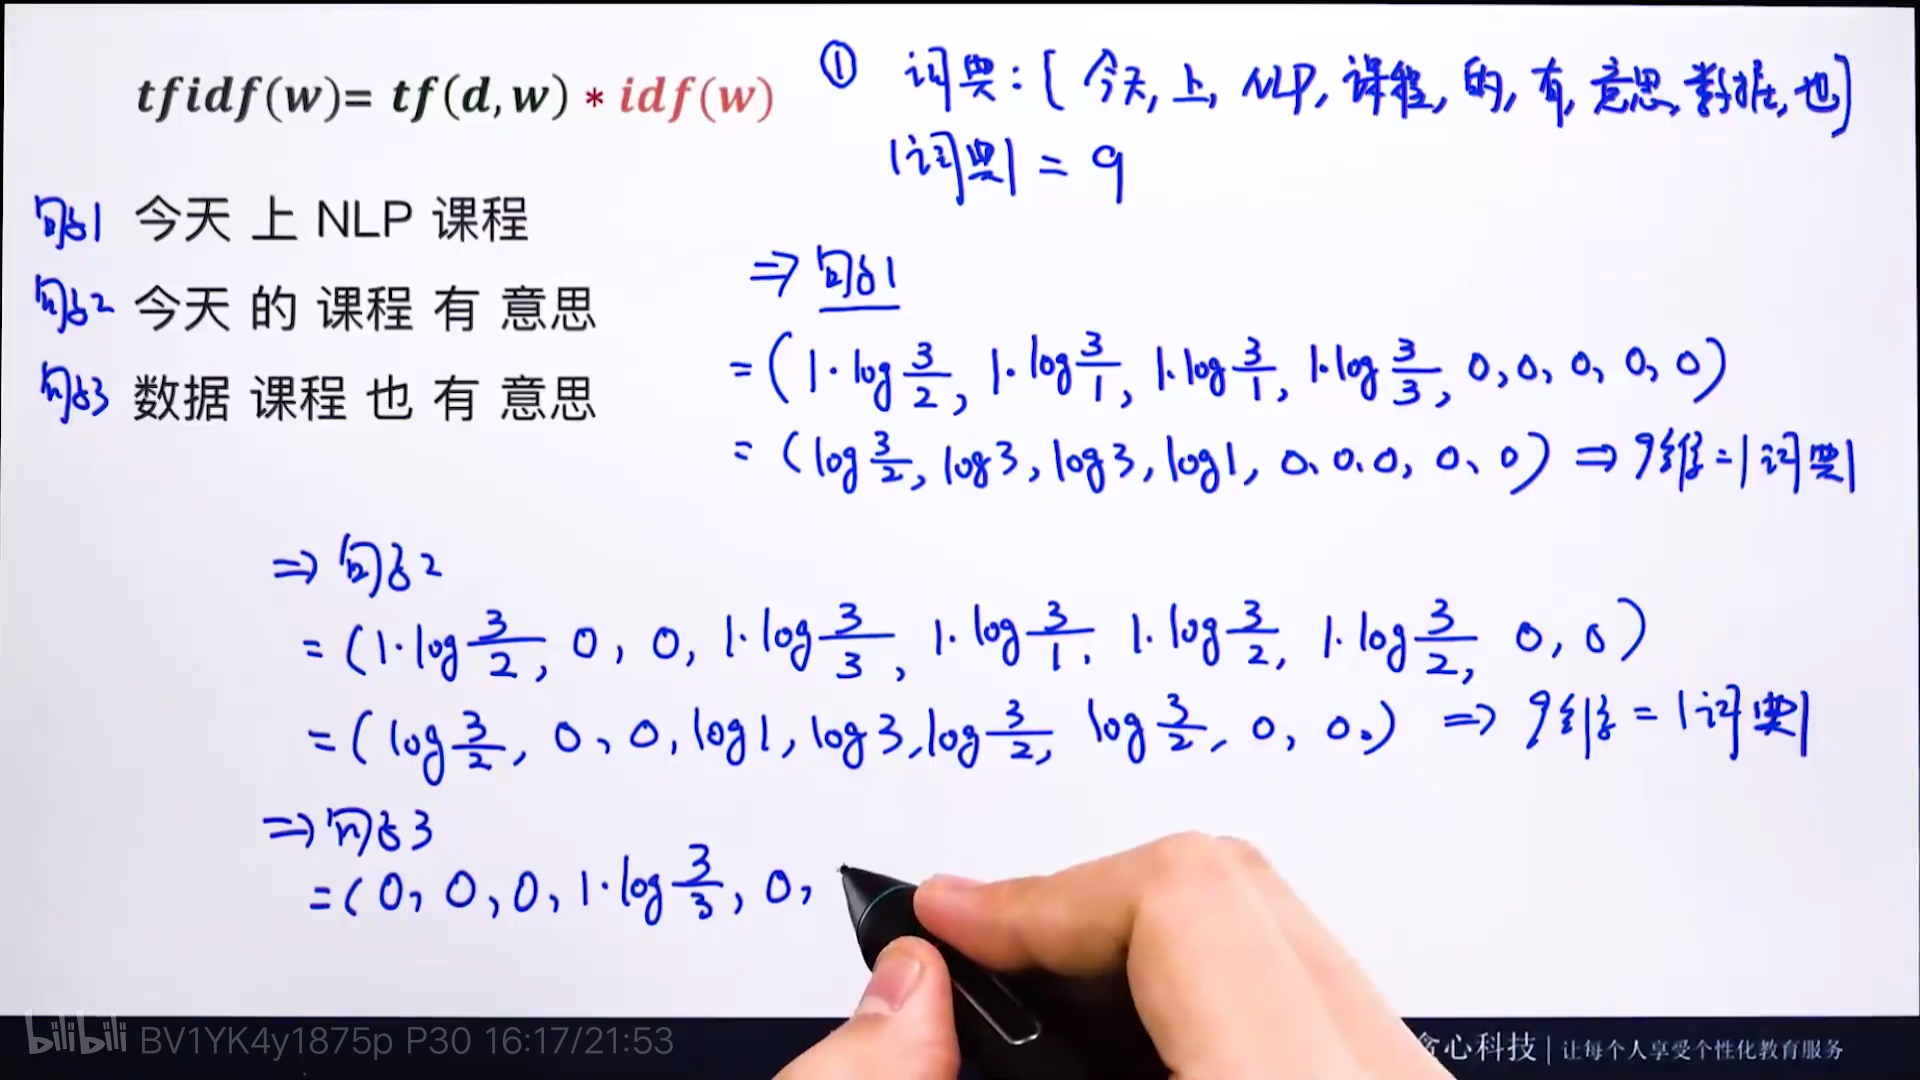 tfidf(w)= tf(d,w) * idf(w)
① 词典: [今天, 上, NLP, 课程, 的, 有, 意思, 数据, 也]
|词典| = 9
句子1 今天 上 NLP 课程
句子2 今天 的 课程 有 意思
句子3 数据 课程 也 有 意思
⇒ 句子1
= (1·log 3/2, 1·log 3/1, 1·log 3/1, 1·log 3/3, 0, 0, 0, 0, 0)
= (log 3/2, log3, log3, log1, 0, 0, 0, 0, 0) ⇒ 9维 = |词典|
⇒ 句子2
= (1·log 3/2, 0, 0, 1·log 3/3, 1·log 3/1, 1·log 3/2, 1·log 3/2, 0, 0)
= (log 3/2, 0, 0, log1, log3, log 3/2, log 3/2, 0, 0.) ⇒ 9维 = |词典|
⇒ 句子3
= (0, 0, 0, 1·log 3/3, 0,
bilibili BV1YK4y1875p P30 16:17/21:53
贪心科技 | 让每个人享受个性化教育服务